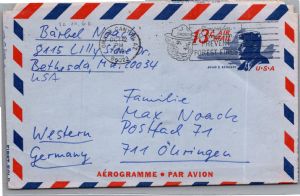 10.11.68
Bärbel
8115 Lilly Stone Dr.
Bethesda, Md. 20034
USA
13¢
U.S. AIR MAIL
PREVENT
FOREST FIRES
JOHN F. KENNEDY
U·S·A
Familie
Max Noack
Postfach 71
711 Öhringen
Western
Germany
AÉROGRAMME · PAR AVION